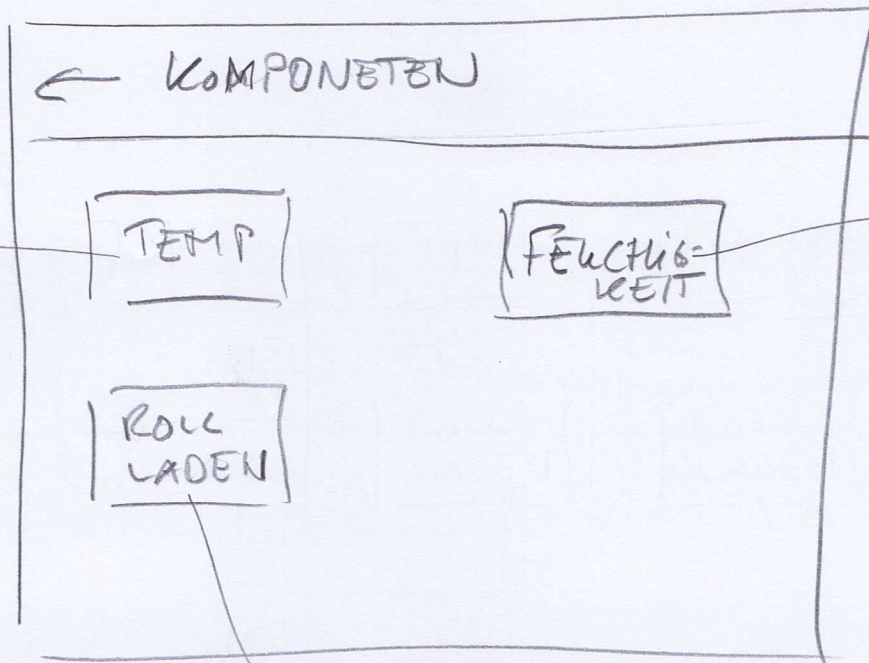 ← KOMPONETEN
TEMP
FEUCHTIG-
KEIT
ROLL
LADEN